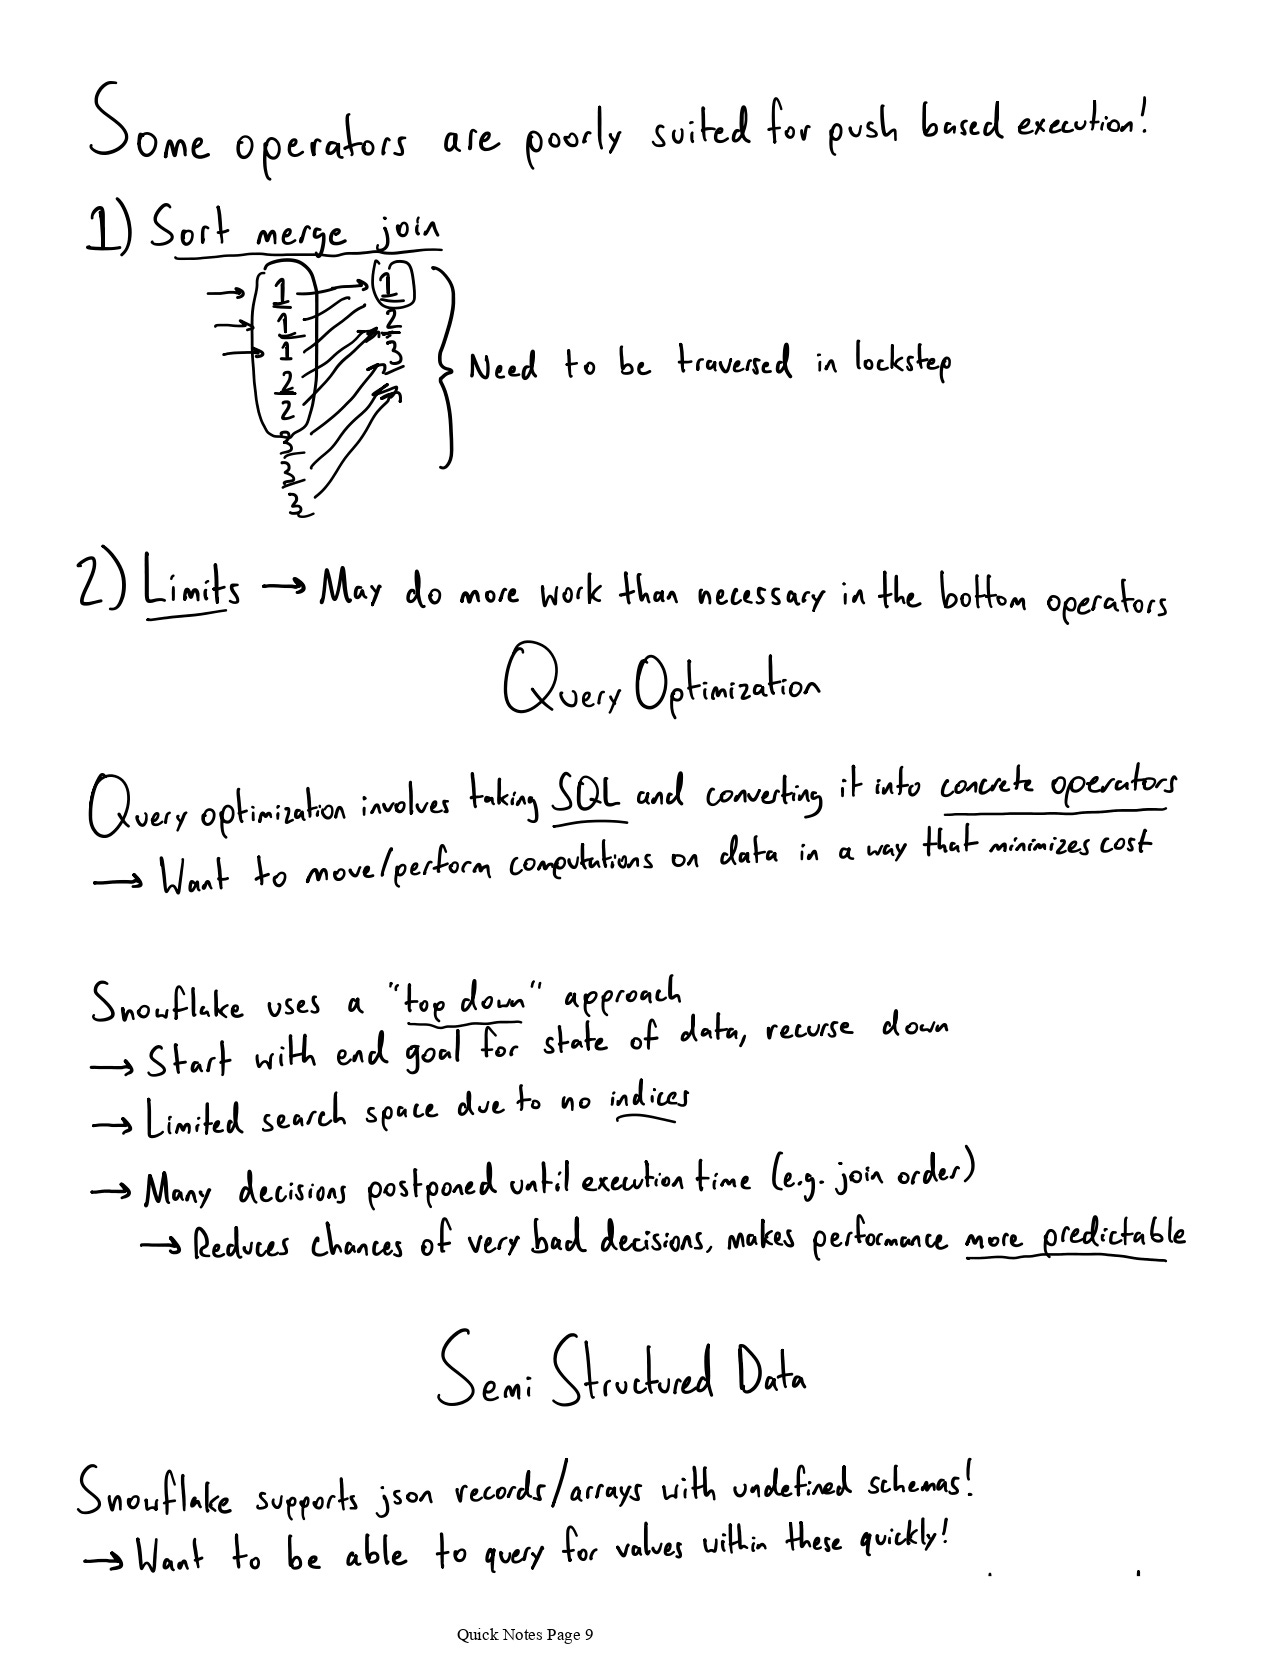 Some operators are poorly suited for push based execution!
1) Sort merge join
1 1
1 2
1 3
2
2
3
3
3
Need to be traversed in lockstep
2) Limits → May do more work than necessary in the bottom operators
Query Optimization
Query optimization involves taking SQL and converting it into concrete operators
→ Want to move/perform computations on data in a way that minimizes cost
Snowflake uses a "top down" approach
→ Start with end goal for state of data, recurse down
→ Limited search space due to no indices
→ Many decisions postponed until execution time (e.g. join order)
→ Reduces chances of very bad decisions, makes performance more predictable
Semi Structured Data
Snowflake supports json records/arrays with undefined schemas!
→ Want to be able to query for values within these quickly!
Quick Notes Page 9